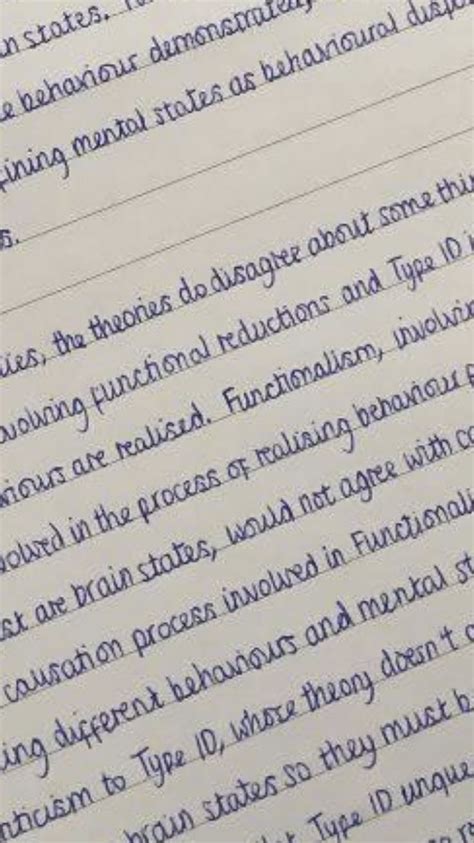 n states.
e behaviour demonstrated
ining mental states as behavioural disp
s.
ies, the theories do disagree about some thin
volving functional reductions and Type ID i
iours are realised. Functionalism, involvin
volved in the process of realising behaviour f
st are brain states, would not agree with co
causation process involved in Functionali
ing different behaviours and mental st
nticism to Type ID, whose theory doesn't a
brain states so they must b
Type ID unque